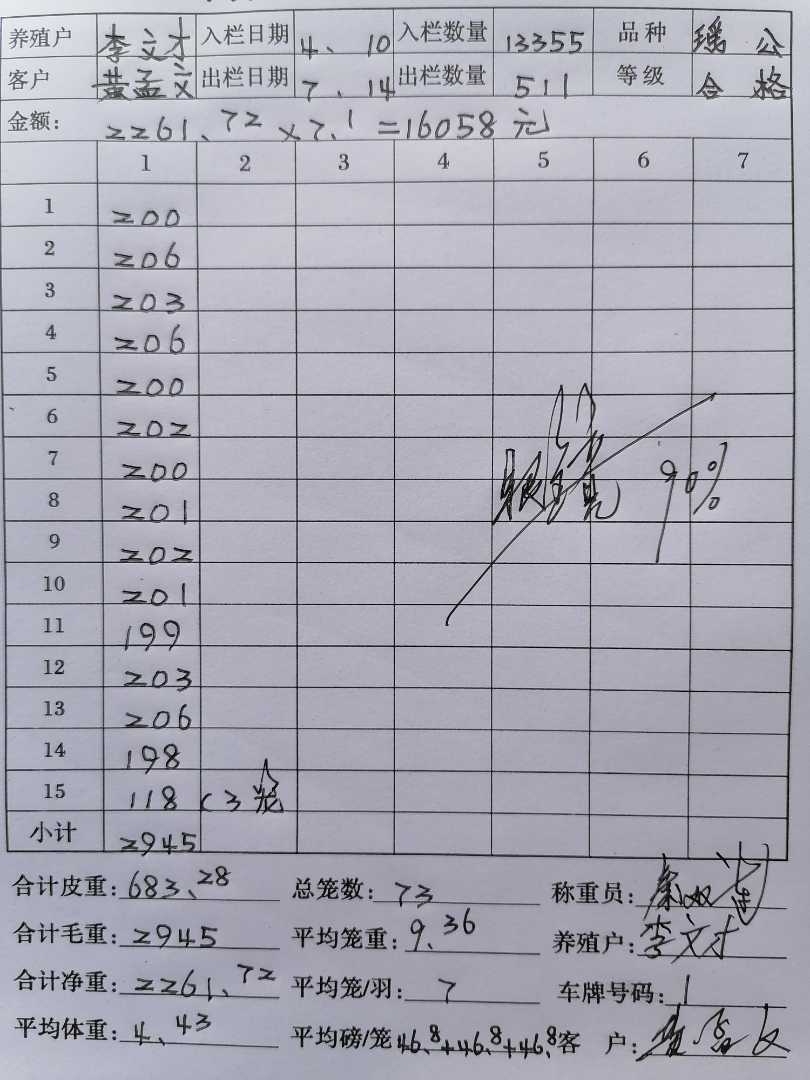 养殖户 李文才 入栏日期 4、10 入栏数量 13355 品种 瑶公
客户 黄孟文 出栏日期 7、14 出栏数量 511 等级 合格
金额： 2261.72×7.1=16058元
1 2 3 4 5 6 7
1 200
2 206
3 203
4 206
5 200
6 202
7 200
8 201
9 202
10 201
11 199
12 203
13 206
14 198
15 118 (3笼
90%
小计 2945
合计皮重：683.28 总笼数：73 称重员：
合计毛重：2945 平均笼重：9.36 养殖户：李文才
合计净重：2261.72 平均笼/羽：7 车牌号码：1
平均体重：4.43 平均磅/笼 46.8+46.8+46.8 客户：